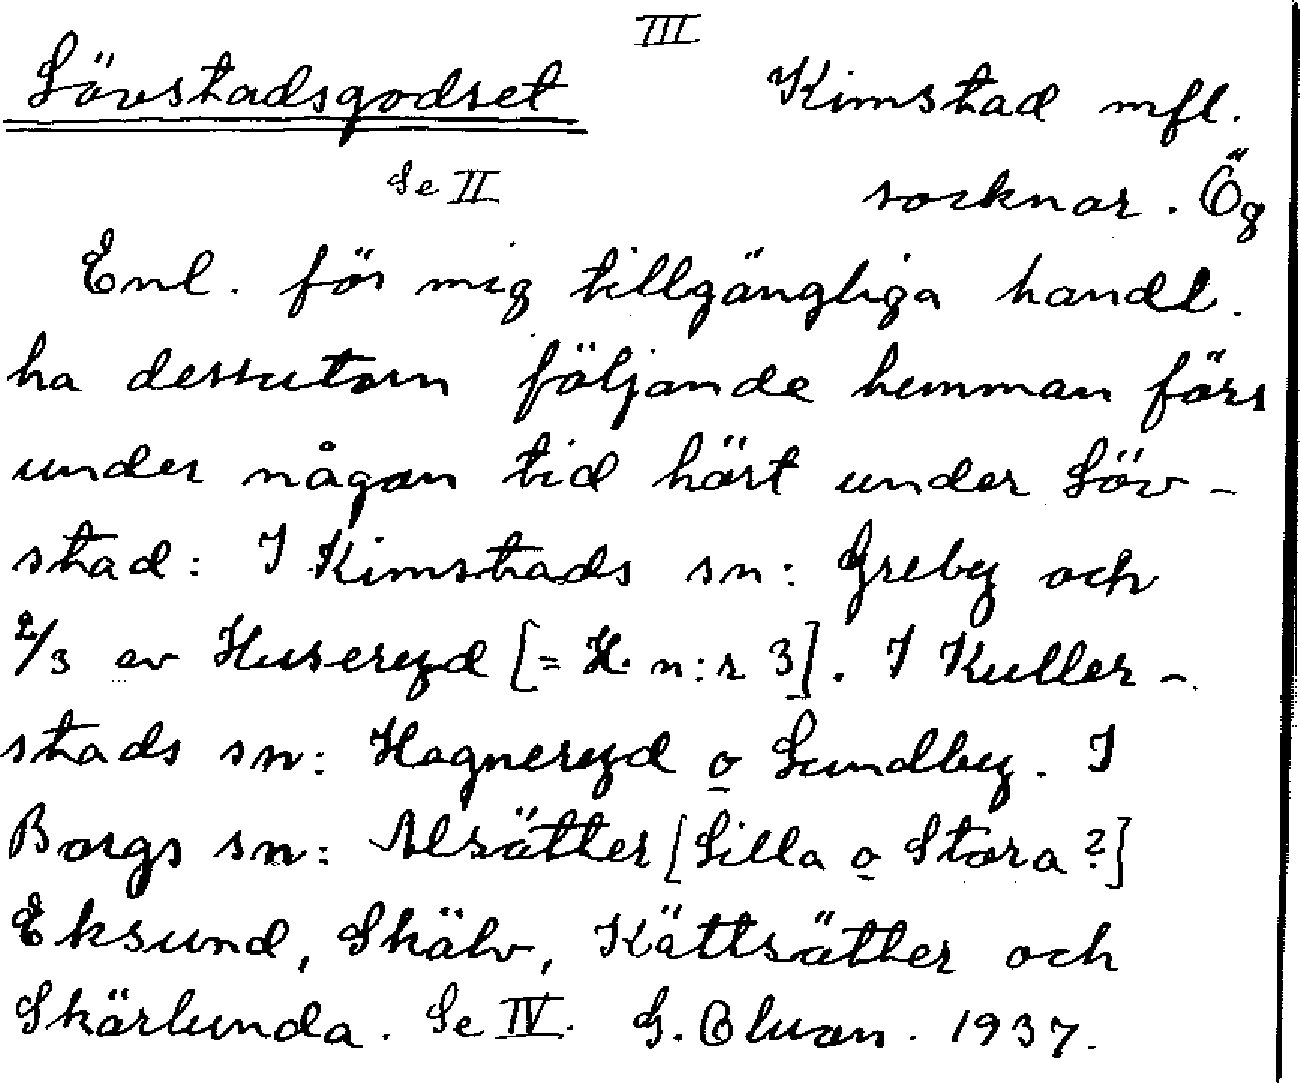 III
Lövstadsgodset
Kimstad mfl.
Se II
socknar. Ög
Enl. för mig tillgängliga handl.
ha dessutom följande hemman förs
under någon tid hört under Löv-
stad: I Kimstads sn: Greby och
2/3 av Huseryd [= H. n:r 3]. I Kuller-
stads sn: Hagneryd o Lundby. I
Borgs sn: Alsätter [Lilla o Stora?]
Eksund, Skälv, Kättsätter och
Skärlunda. Se IV. G. 1937.